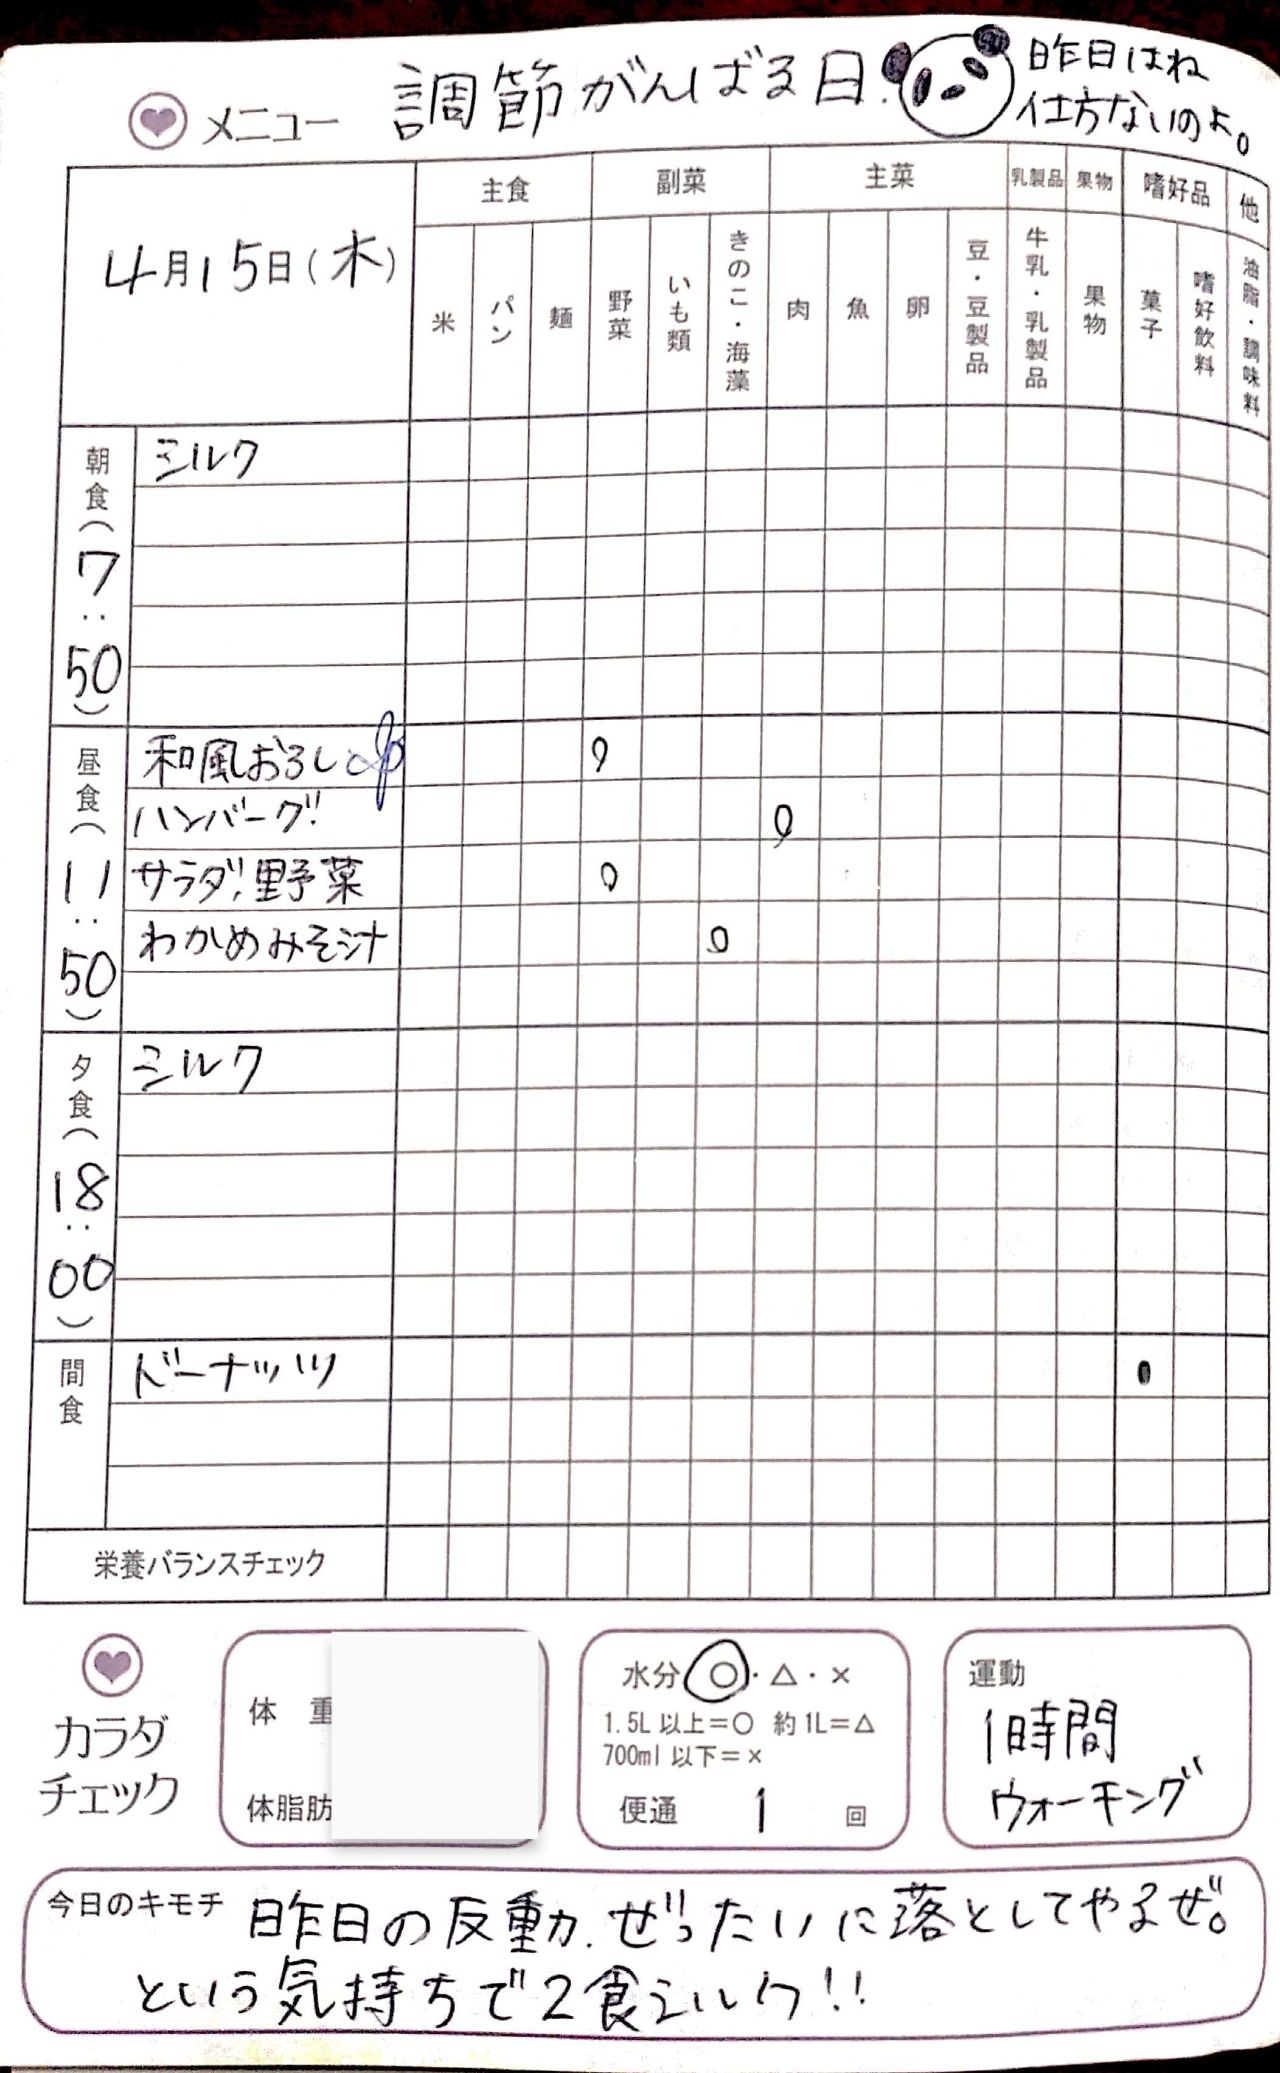 メニュー 調節がんばる日。
昨日はね
仕方ないのよ。
4月15日(木)
主食 副菜 主菜 乳製品 果物 嗜好品 他
米 パン 麺 野菜 いも類 きのこ・海藻 肉 魚 卵 豆・豆製品 牛乳・乳製品 果物 菓子 嗜好飲料 油脂・調味料
朝食(7:50)
ミルク
昼食(11:50)
和風おろし
ハンバーグ!
サラダ!野菜
わかめみそ汁
夕食(18:00)
ミルク
間食
ドーナッツ
栄養バランスチェック
カラダ
チェック
体重
体脂肪
水分 ○・△・×
1.5L以上=○ 約1L=△
700ml以下=×
便通 1 回
運動
1時間
ウォーキング
今日のキモチ 昨日の反動.ぜったいに落としてやるぜ。
という気持ちで2食ミルク!!